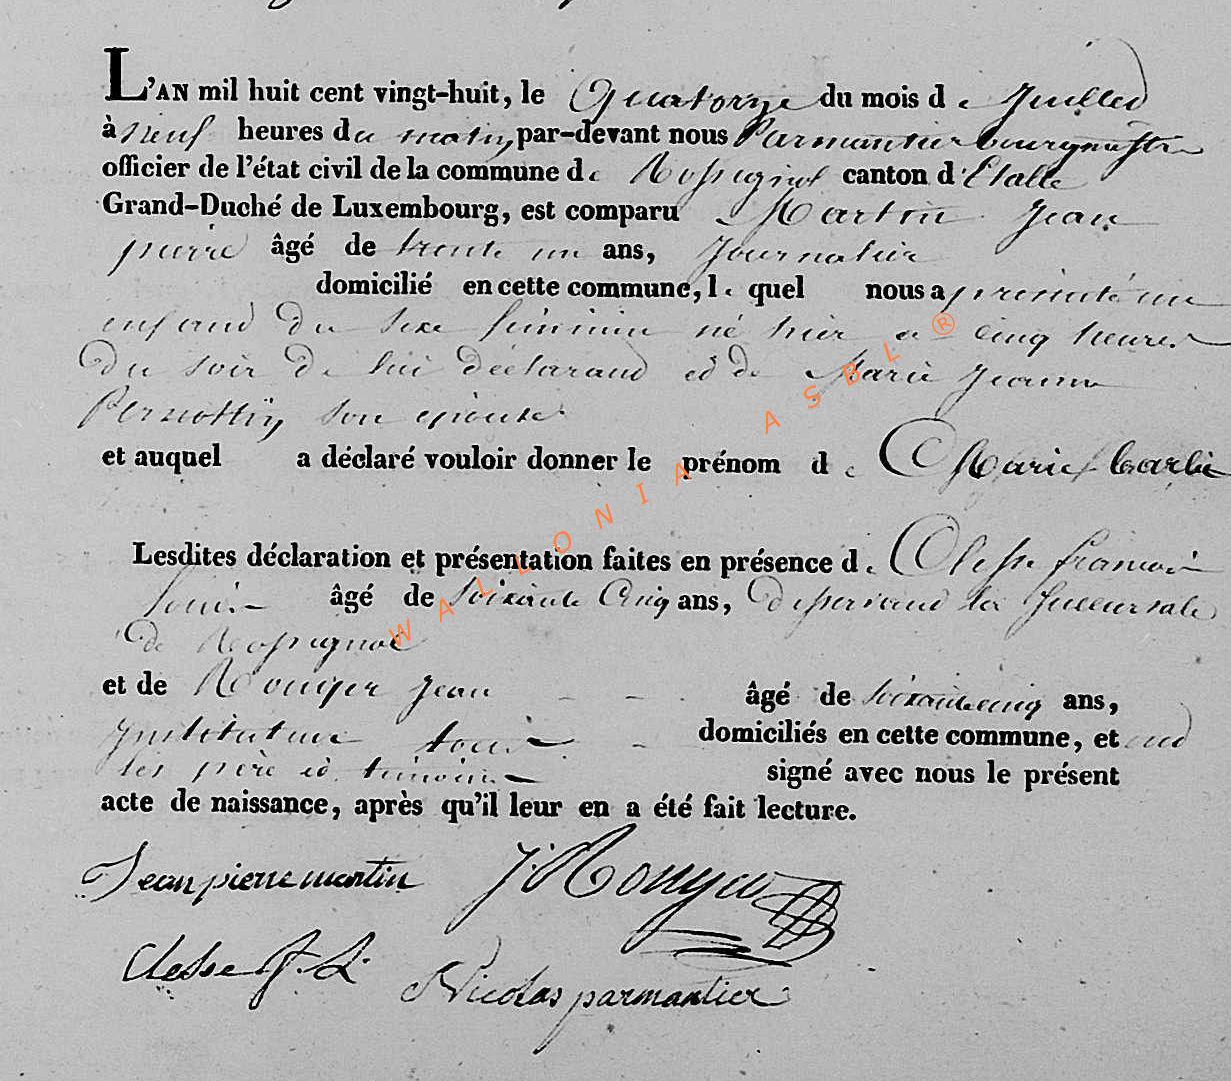 L'AN mil huit cent vingt-huit, le Quatorze du mois de Juillet
à neuf heures du matin, par-devant nous Parmantier bourgmestre
officier de l'état civil de la commune de Rossignol canton d'Etalle
Grand-Duché de Luxembourg, est comparu Martin Jean
pierre âgé de trente un ans, Journalier
domicilié en cette commune, le quel nous a presenté un
enfand du sexe féminin né hier a cinq heures
du soir de lui déclarand et de Marie Jeanne
son epouse
et auquel a déclaré vouloir donner le prénom de Marie barbe
Lesdites déclaration et présentation faites en présence de Clesse francois
Louis âgé de soixante Cinq ans, desservand la succursale
de Rossignol
et de Jean âgé de soixante cinq ans,
Instituteur domiciliés en cette commune, et ont
les père et témoins signé avec nous le présent
acte de naissance, après qu'il leur en a été fait lecture.
Jean pierre martin
Clesse f. L.
Nicolas parmantier
WALLONIA ASBL ®